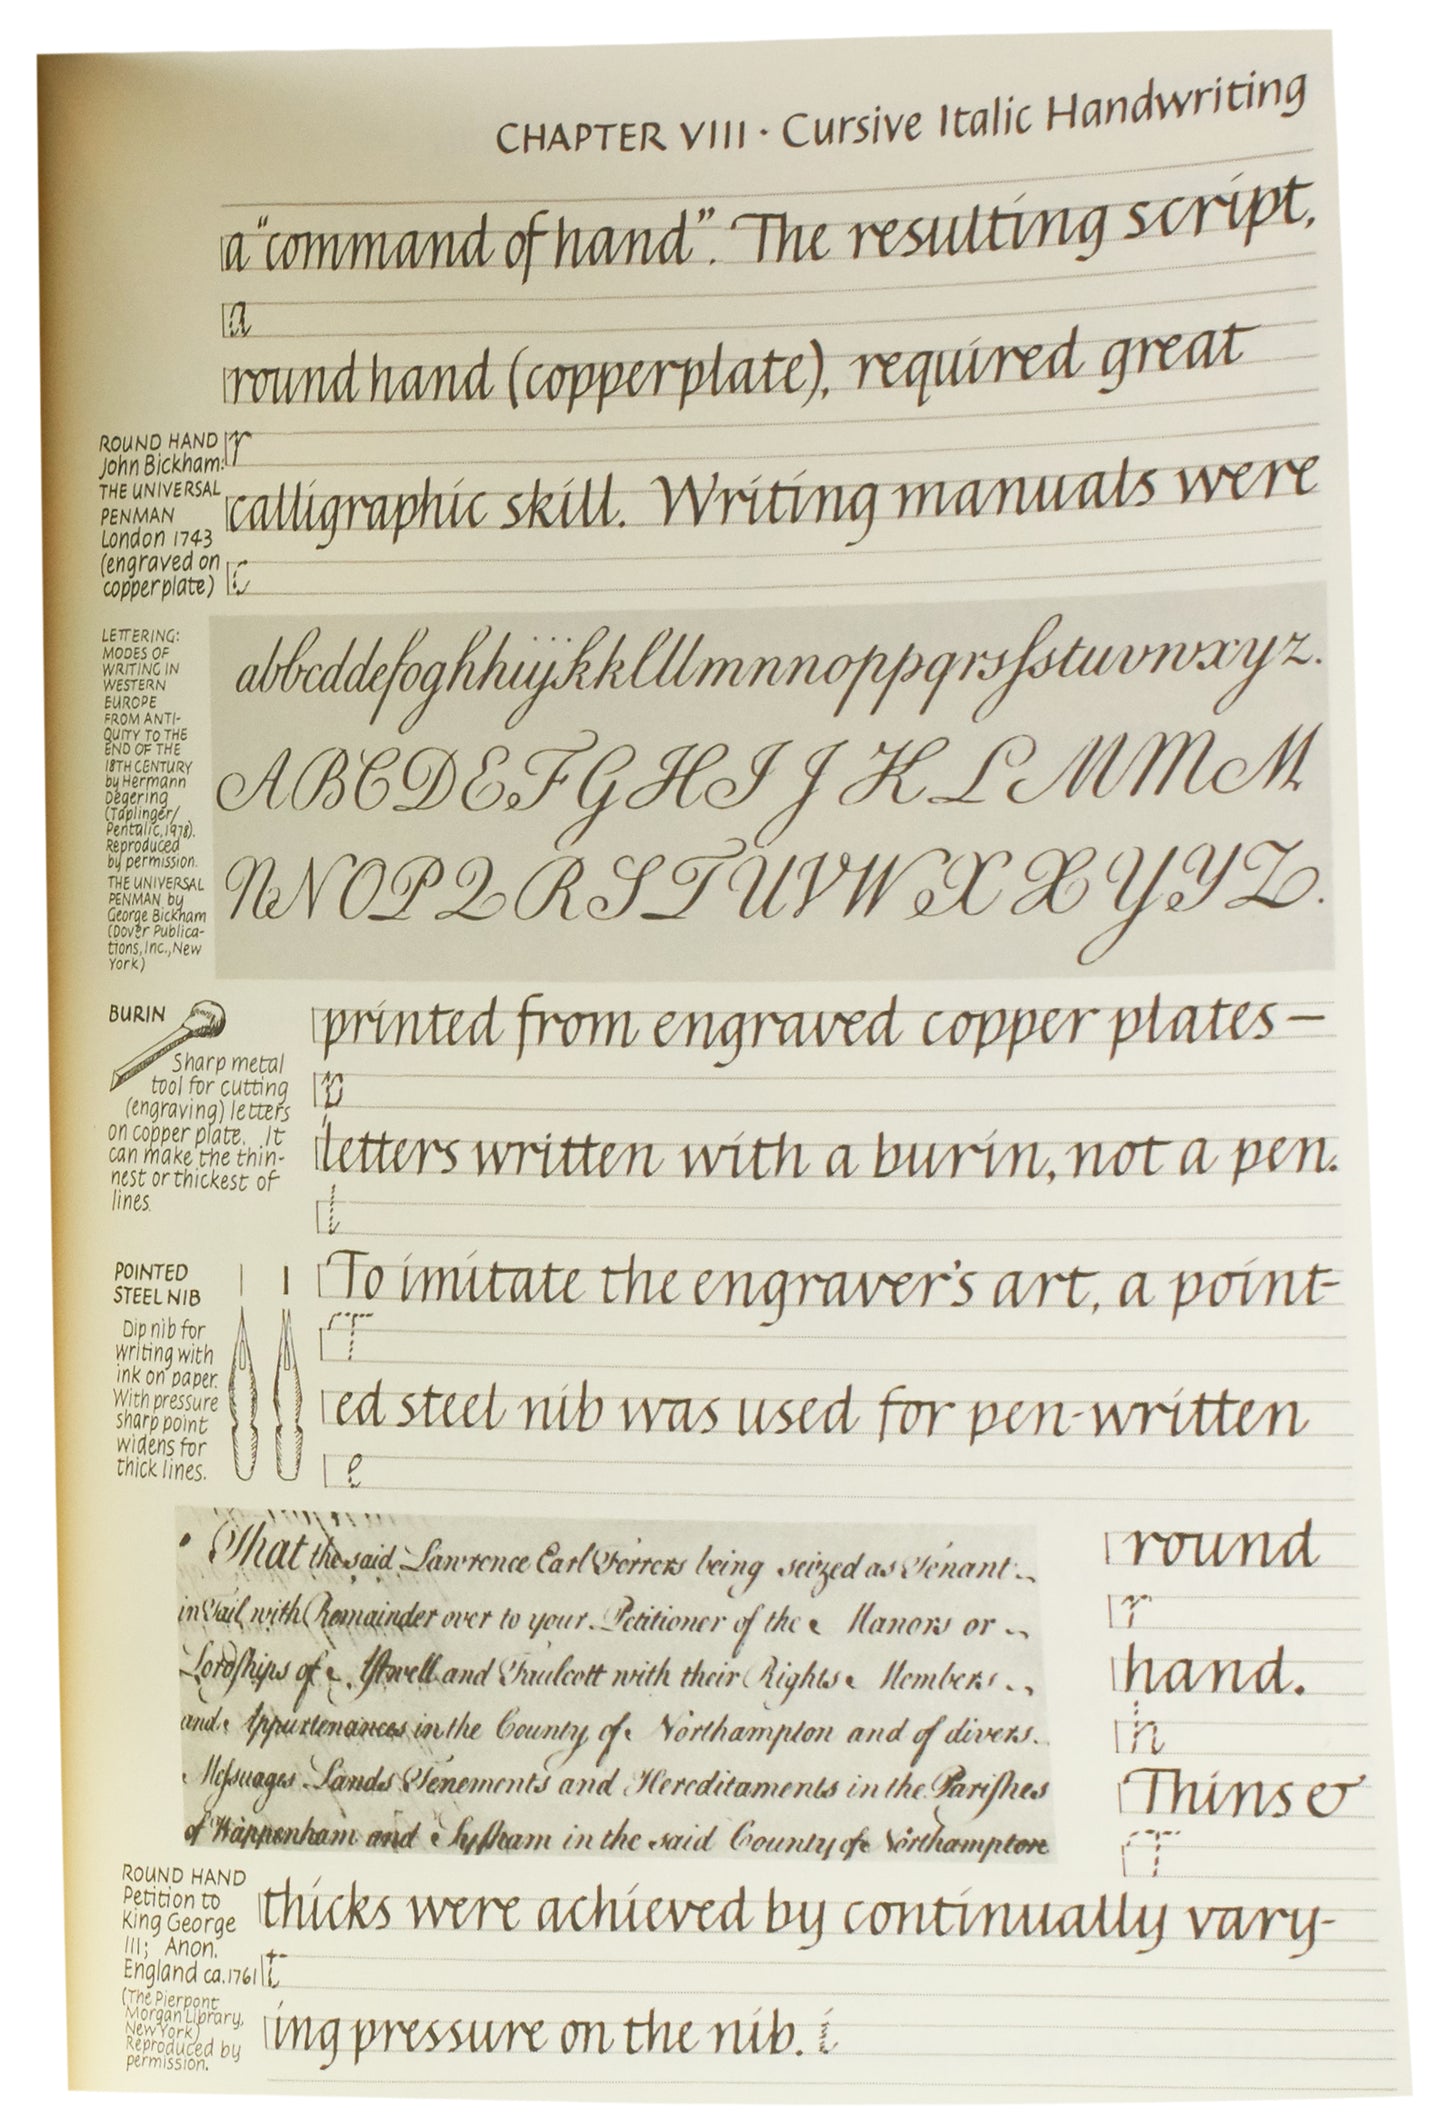 CHAPTER VIII · Cursive Italic Handwriting
a "command of hand". The resulting script,
a
round hand (copperplate), required great
r
calligraphic skill. Writing manuals were
c
ROUND HAND
John Bickham:
THE UNIVERSAL
PENMAN
London 1743
(engraved on
copperplate)
LETTERING:
MODES OF
WRITING IN
WESTERN
EUROPE
FROM ANTI-
QUITY TO THE
END OF THE
18TH CENTURY
by Hermann
Degering
(Taplinger/
Pentalic, 1978).
Reproduced
by permission.
THE UNIVERSAL
PENMAN by
George Bickham
(Dover Publica-
tions, Inc., New
York)
abbcddefoghhiijkkllllmnnnoppqrsſstuvwxyz.
ABCDEFGHIJKLMMM
NNOPQRSTUVWXXYYZ.
BURIN
Sharp metal
tool for cutting
(engraving) letters
on copper plate. It
can make the thin-
nest or thickest of
lines.
printed from engraved copper plates —
p
letters written with a burin, not a pen.
l
POINTED
STEEL NIB
Dip nib for
writing with
ink on paper.
With pressure
sharp point
widens for
thick lines.
To imitate the engraver's art, a point-
T
ed steel nib was used for pen-written
e
That the said Lawrence Earl Ferrers being seized as Tenant
in Tail with Remainder over to your Petitioner of the Manors or
Lordſhips of Aſtwell and Faulcott with their Rights Members
and Appurtenances in the County of Northampton and of divers
Meſsuages Lands Tenements and Hereditaments in the Pariſhes
of Wappenham and Syſham in the said County of Northampton
round
r
hand.
h
Thins &
T
ROUND HAND
Petition to
King George
III; Anon.
England ca. 1761
(The Pierpont
Morgan Library,
New York)
Reproduced by
permission.
thicks were achieved by continually vary-
t
ing pressure on the nib. i